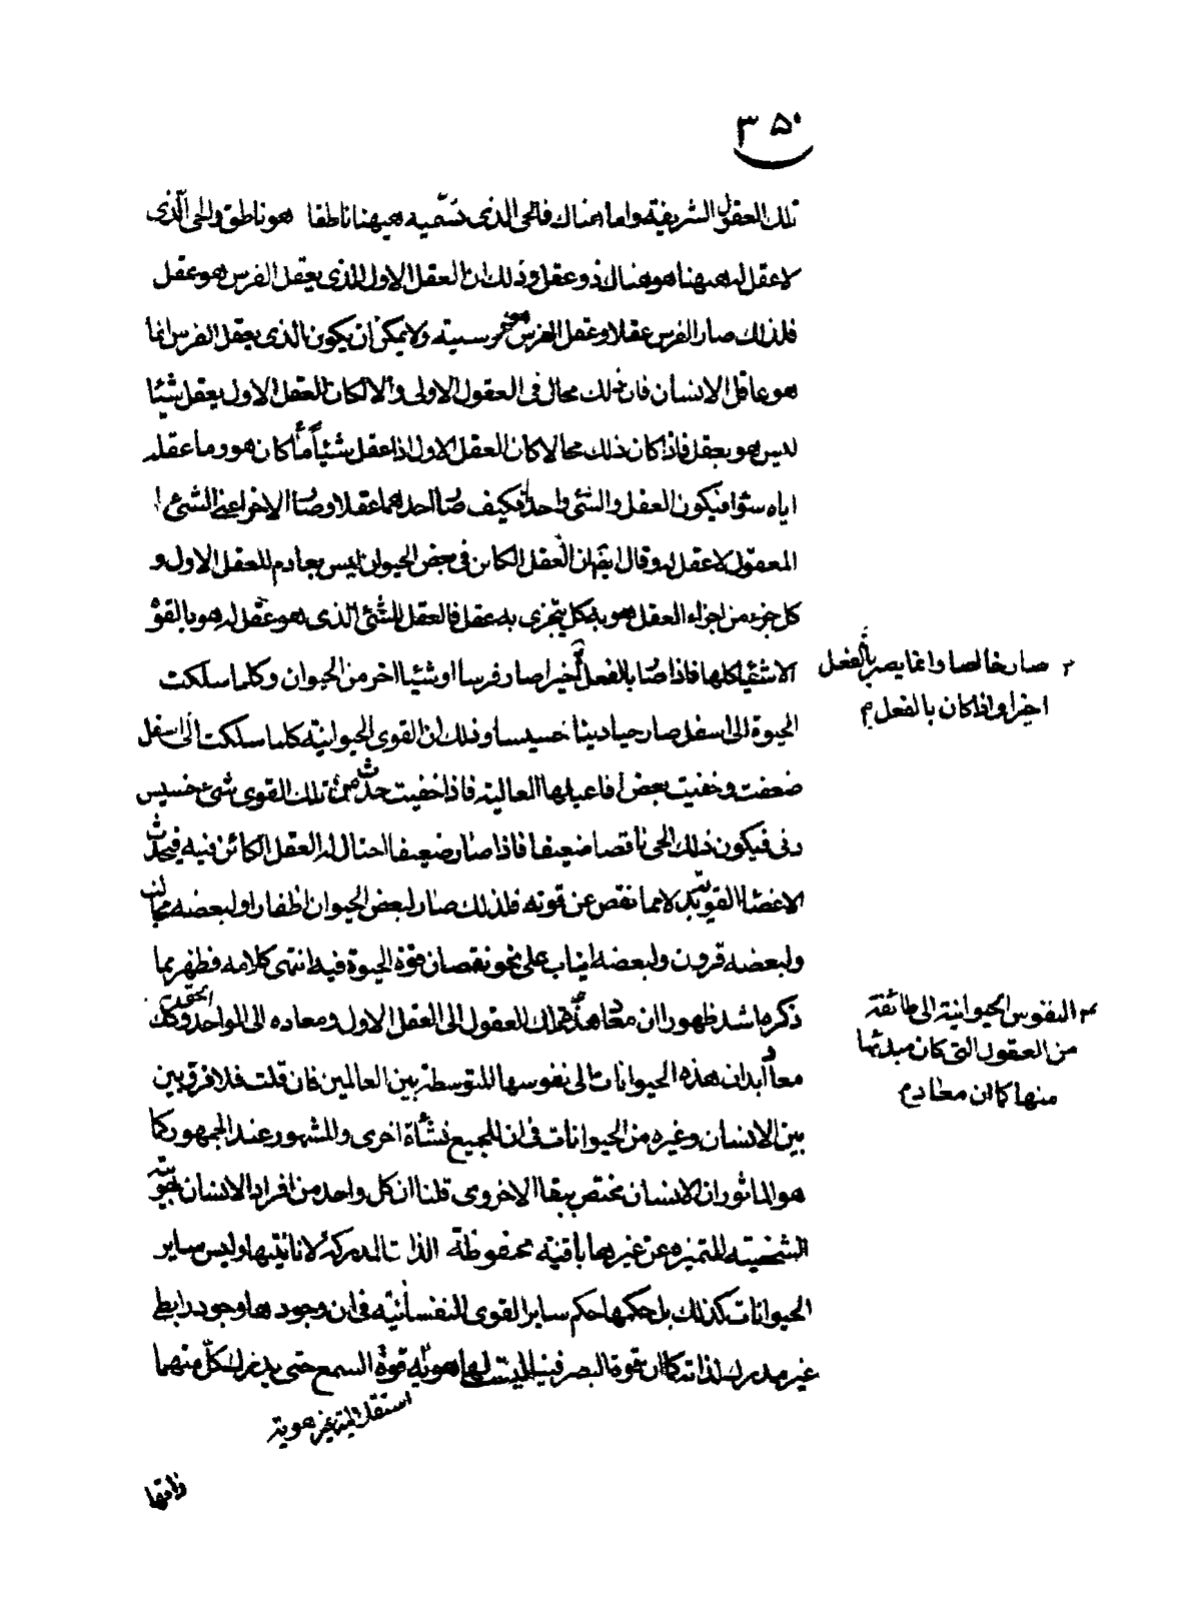 ٣٥٠
تلك العقول الشريفة واما هناك فالحى الذى نسميه هيهنا ناطقا هو ناطق والحى الّذى
لا عقل له هيهنا هو هناك ذو عقل وذلك ان العقل الاول الذى يعقل الفرس هو عقل
فلذلك صار الفرس عقلا وعقل الفرس هو فرسيته ولا يمكن ان يكون الذى يعقل الفرس انما
هو عاقل الانسان فان ذلك محال فى العقول الاولى والا لكان العقل الاول يعقل شيئا
ليس هو بعقل فاذا كان ذلك محالا كان العقل الاول اذا عقل شيئاً مّا كان هو وما عقله
اياه سواء فيكون العقل والشئ واحدا فكيف صار احدهما عقلا وصار الاخر اعنى الشئ ا
المعقول لا عقل له وقال ايضا ان العقل الكائن فى بعض الحيوان ليس بعادم للعقل الاول و
كل جزء من اجزاء العقل هو به كل يتجزى به عقل فالعقل للشئ الذى هو عقل له هو بالقوة
الاشياء كلها فاذا صار بالفعل اخيرا صار فرسا او شيئا اخر من الحيوان وكلما سلكت
الحيوة الى اسفل صار حيا دينا خسيسا وذلك ان القوى الحيوانية كلما سلكت الى اسفل
ضعفت وخفيت بعض افاعيلها العالية فاذا خفيت حدث من تلك القوى شئ خسيس
دنى فيكون ذلك الحى ناقصا ضعيفا فاذا صار ضعيفا احتال له العقل الكائن فيه فيحدث
الاعضاء القوية بدلا مما نقص عن قوته فلذلك صار لبعض الحيوان اظفار ولبعضه مخالب
ولبعضه قرون ولبعضه انياب على نحو نقصان قوة الحيوة فيه انتهى كلامه فظهر بما
ذكره اشد ظهور ان معاد هذه تلك العقول الى العقل الاول ومعاده الى الواحد الحق وكذلك
معاد ابدان هذه الحيوانات الى نفوسها المتوسطة بين العالمين فان قلت فلا فرق بين
بين الانسان وغيره من الحيوانات فى ان للجميع نشأة اخرى والمشهور عند الجمهور كما
هو الماثور ان الانسان مختص ببقاء الاخروى قلنا ان كل واحد من افراد الانسان بهويته
الشخصية المتميزه عن غيرها باقية محفوظة الذات المدركة لانانيتها وليس ساير
الحيوانات كذلك بل حكمها حكم ساير القوى النفسانية فى ان وجودها وجود رابطى
غير مدرك لذاته كما ان قوة البصر فينا ليست لها هوية قوة السمع حتى يدرك كلّ منهما
استقلالية غير هوية
ذاتها
٢ صار خالصا وانما يصير بالفعل
اخيرا واذا كان بالفعل م
٢ النفوس الحيوانية الى طائفة
من العقول التى كان مبدئها
منها كما ان معاد م